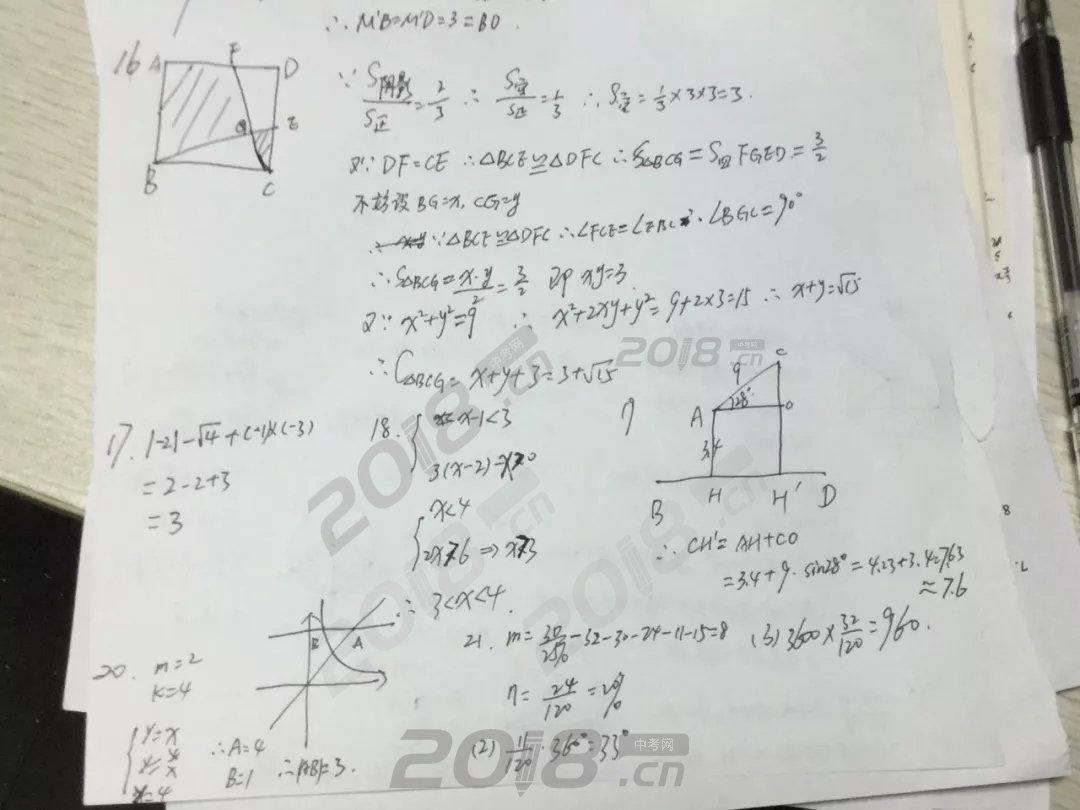 ∴ M'B=M'D=3=BD.
16
A F D
G E
B C
∵ S阴影/S正=2/3 ∴ S空/S正=1/3 ∴ S空=1/3×3×3=3.
又∵ DF=CE ∴△BCE≌△DFC ∴S△BCG=S四FGED=3/2
不妨设BG=x, CG=y
∵△BCE≌△DFC ∴∠FCE=∠EBC ∴∠BGC=90°
∴S△BCG=x·y/2=3/2 即 xy=3.
又∵ x²+y²=9 ∴ x²+2xy+y²=9+2×3=15 ∴ x+y=√15
∴C△BCG=x+y+3=3+√15
17. |-2|-√4+(-1)×(-3)
=2-2+3
=3
18. { x-1<3
3(x-2)-x>0
{ x<4
2x>6 ⇒ x>3
∴ 3<x<4.
C
9
A 28° O
3.4
B H H' D
∴ CH'=AH+CO
=3.4+9·sin28°=4.23+3.4=7.63
≈7.6
20. m=2
k=4
B A
{ y=x
y=4/x
x=4
∴A=4
B=1 ∴AB=3.
21. m=30/25%-32-30-24-11-15=8 (3) 3600×32/120=960.
n=24/120=20%
(2) 11/120·360°=33°
2018.cn
中考网
2018.cn
中考网
2018.cn
2018.cn
中考网